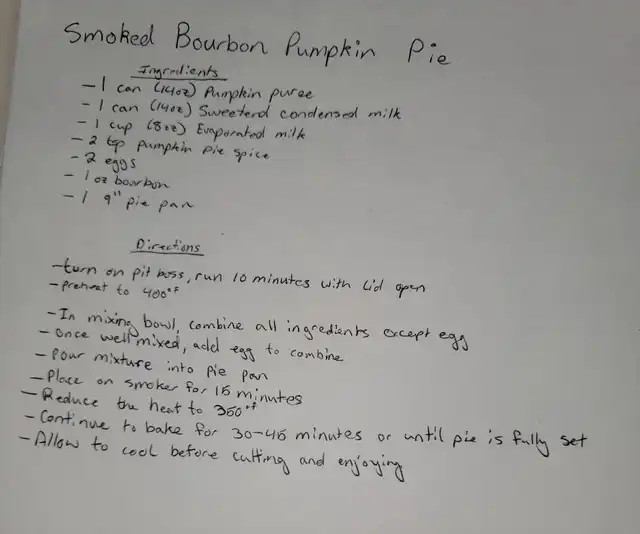 Smoked Bourbon Pumpkin Pie
Ingredients
- 1 can (14oz) Pumpkin puree
- 1 can (14oz) Sweetend condensed milk
- 1 cup (8oz) Evaporated milk
- 2 tsp pumpkin pie spice
- 2 eggs
- 1 oz bourbon
- 1 9" pie pan
Directions
- turn on pit boss, run 10 minutes with lid open
- preheat to 400°F
- In mixing bowl, combine all ingredients except egg
- Once well mixed, add egg to combine
- Pour mixture into pie pan
- Place on smoker for 15 minutes
- Reduce the heat to 350°F
- Continue to bake for 30-45 minutes or until pie is fully set
- Allow to cool before cutting and enjoying